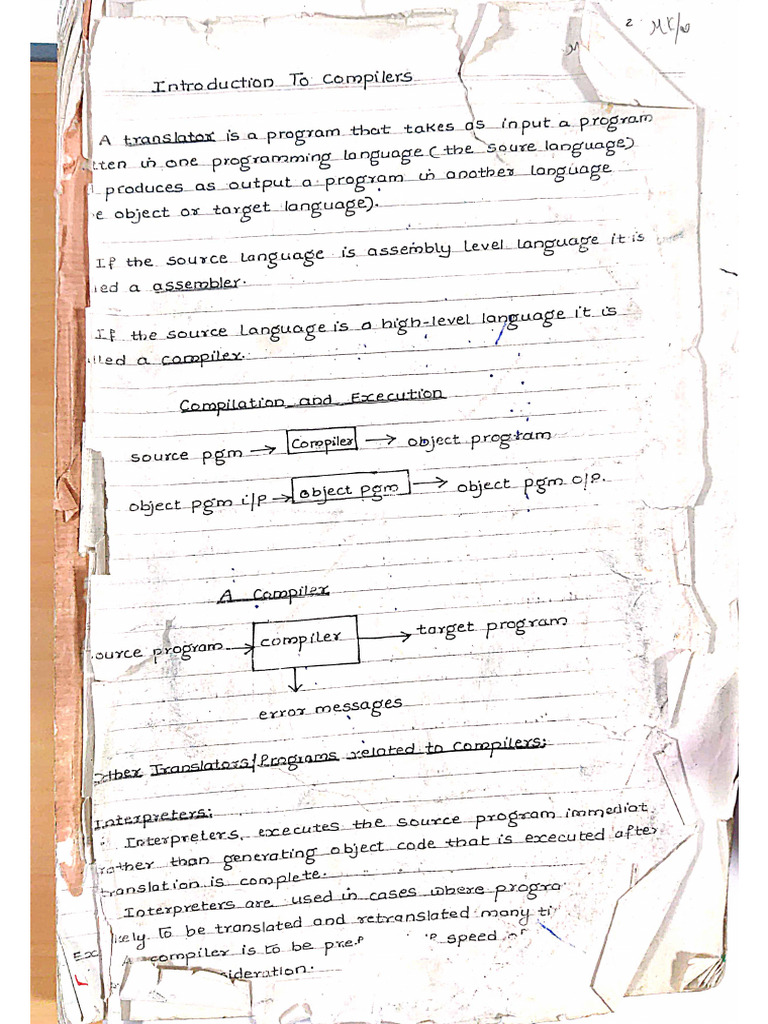 2
Introduction To Compilers
A translator is a program that takes as input a program
tten in one programming language (the soure language)
produces as output a program in another language
e object or target language).
If the source language is assembly level language it is
led a assembler.
If the source language is a high-level language it is
lled a compiler.
Compilation and Execution
source pgm → Compiler → object program
object pgm i/p → object pgm → object pgm o/p.
A Compiler
ource program → compiler → target program
error messages
ther Translators/Programs related to compilers:
Interpreters:
Interpreters, executes the source program immediat
rather than generating object code that is executed after
translation is complete.
Interpreters are used in cases where progra
kely to be translated and retranslated many ti
Ex
A compiler is to be pref speed of
sideration.